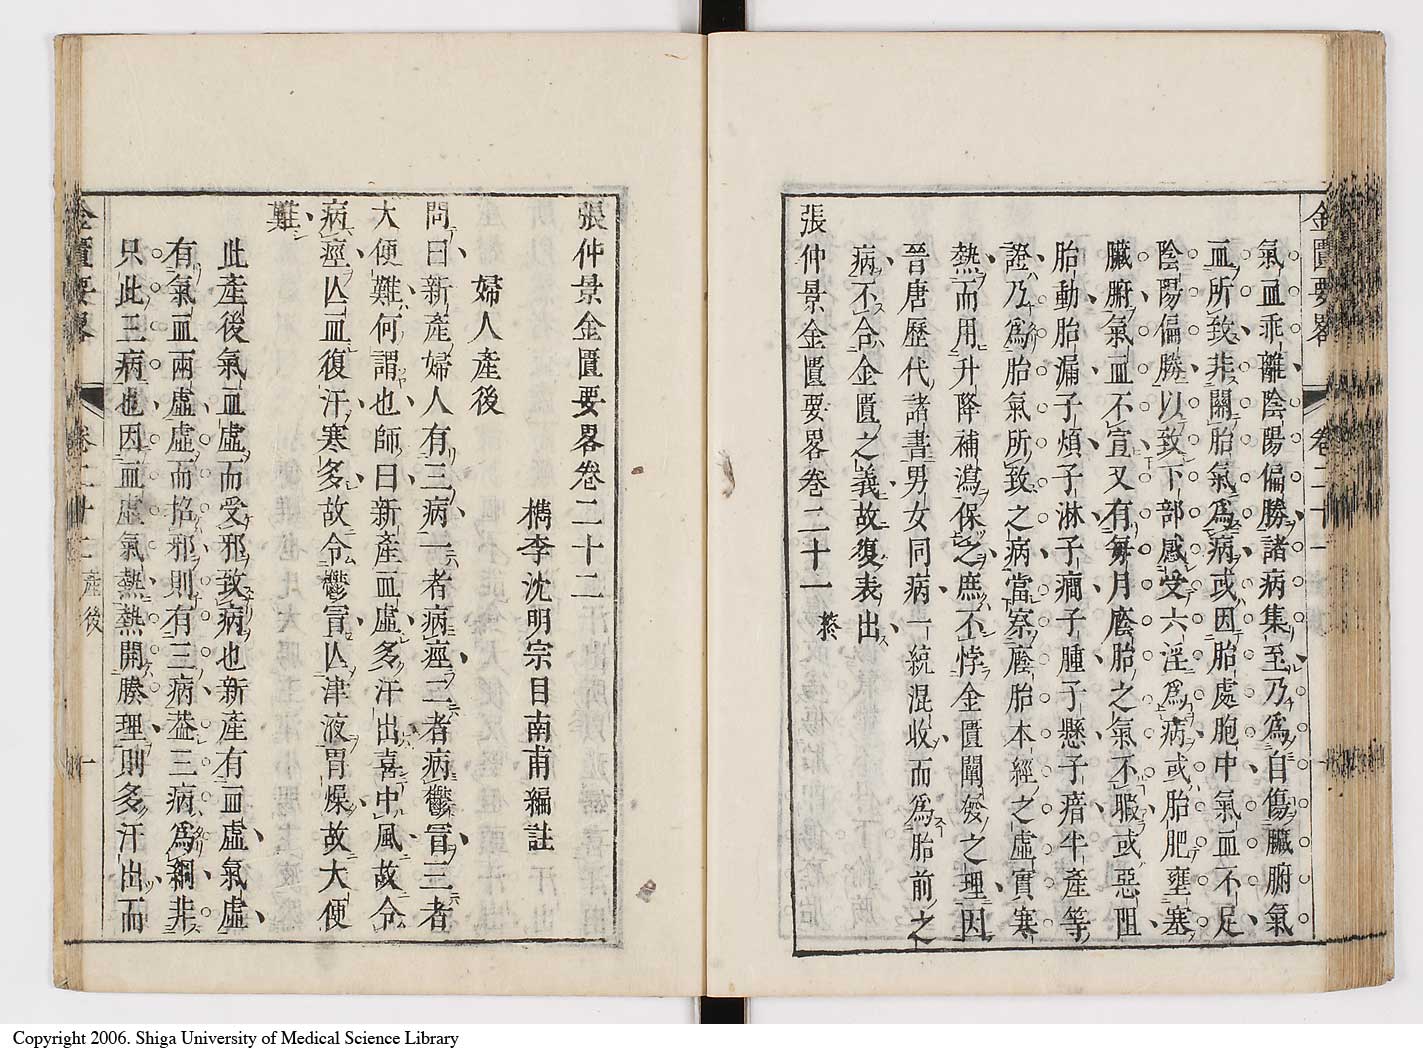 金匱要畧 卷二十一
氣血乖離陰陽偏勝諸病集至乃爲自傷臟腑氣
血所致非關胎氣爲病或因胎處胞中氣血不足
陰陽偏勝以致下部感受六淫爲病或胎肥壅塞
臟腑氣血不宣又有每月廕胎之氣不暇或惡阻
胎動胎漏子煩子淋子癎子腫子懸子瘖半產等
證乃爲胎氣所致之病當察廕胎本經之虛實寒
熱而用升降補瀉保之庶不悖金匱闡發之理因
晉唐歷代諸書男女同病一統混收而爲胎前之
病不合金匱之義故復表出
張仲景金匱要畧卷二十一 終
張仲景金匱要畧卷二十二
檇李沈明宗目南甫編註
婦人產後
問曰新產婦人有三病一者病痙二者病鬱冒三者
大便難何謂也師曰新產血虛多汗出喜中風故令
病痙亾血復汗寒多故令鬱冒亾津液胃燥故大便
難
此產後氣血虛而受邪致病也新產有血虛氣虛
有氣血兩虛虛而招邪則有三病葢三病爲綱非
只此三病也因血虛氣熱熱開腠理則多汗出而
金匱要畧 卷二十二 產後 一
Copyright 2006. Shiga University of Medical Science Library